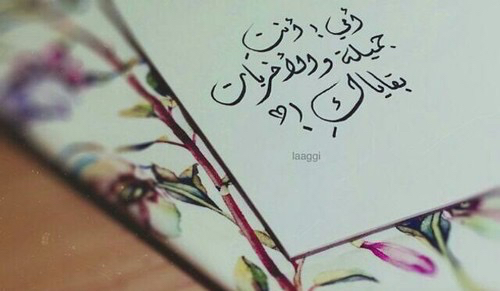 أمي ! أنتِ
جميلة والأخريات
بقاياكِ !! ♡
laaggi